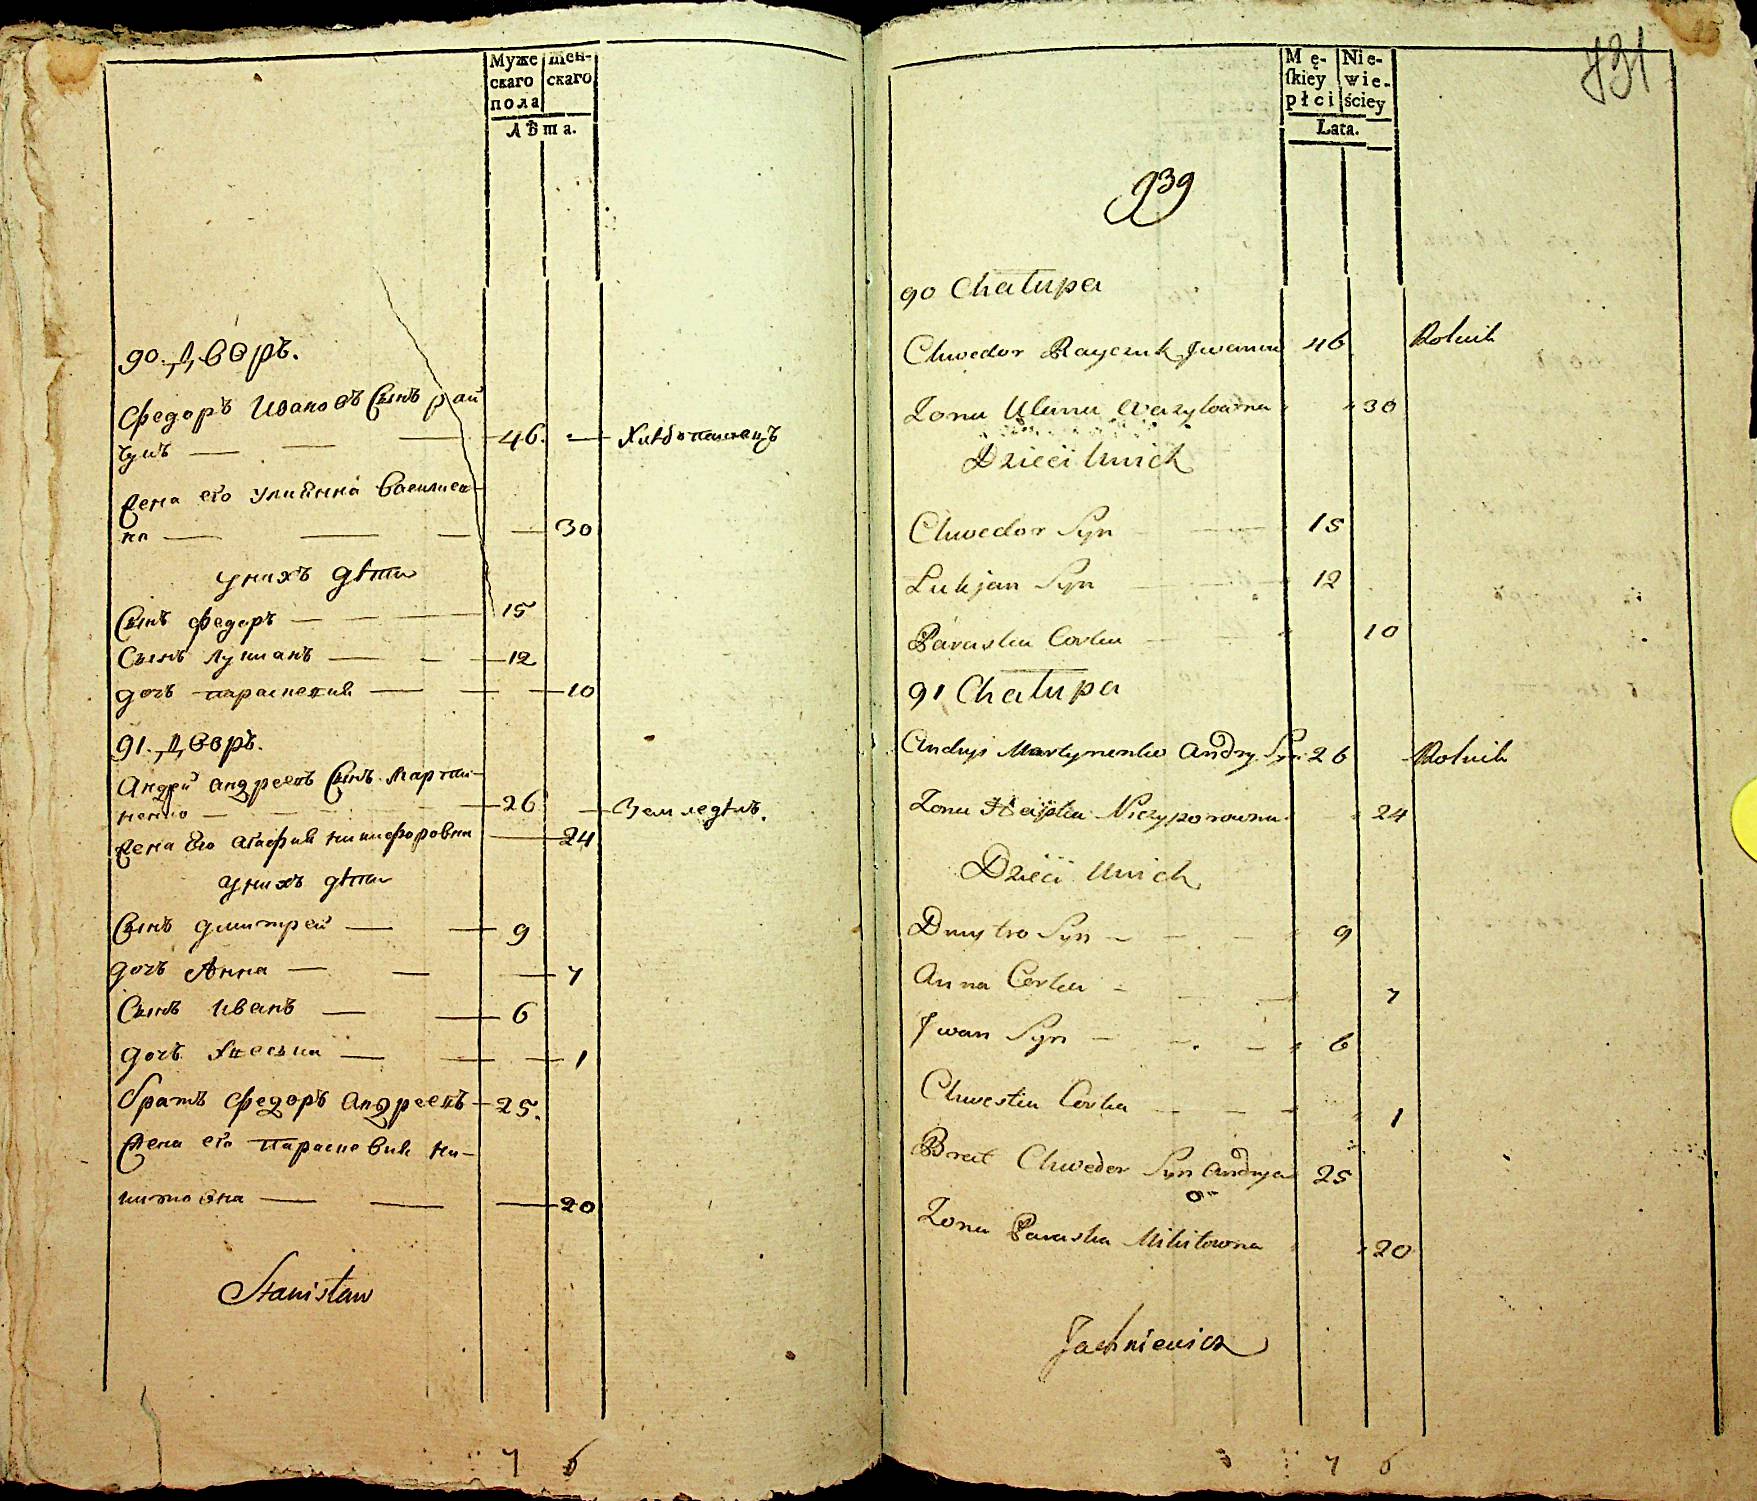 Муже
скаго
пола
Жен-
скаго
Лѣта.
90. Дворъ.
Федоръ Ивановъ Сынъ рай
чукъ 46. Хлѣбопашецъ
Жена его Улиянна Василиев-
на 30
у нихъ дѣти
Сынъ Федоръ 15
Сынъ Лукианъ 12
дочь Параскевия 10
91. Дворъ.
Андрей Андреевъ Сынъ Марти-
ненко 26 Земледѣлъ.
Жена Его Агафия Никифоровна 24
у нихъ дѣти
Сынъ Димитрей 9
дочь Анна 7
Сынъ Иванъ 6
дочь 1
братъ Федоръ Андреевъ 25.
Жена его Параскевия Ни-
китовна 20
Stanisław
7 6
Mę-
ſkiey
płci
Nie-
wie-
ściey
Lata.
131
939
90 Chałupa
Chwedor Rayczuk Jwanow 46 Rolnik
Zona Ulana Wazylowna 30
Dzieci Unich
Chwedor Syn 15
Lukjan Syn 12
Paraska Corka 10
91 Chałupa
Andryi Martynenko Andry. Syn 26 Rolnik
Zona Hapka Niczyporowna 24
Dzieci Unich
Dmytro Syn 9
Anna Corka 7
Jwan Syn 6
Chweska Corka 1
Brat Chwedor Syn Andryia 25
Zona Paraska Mikitowna 20
Jachniewicz
7 6